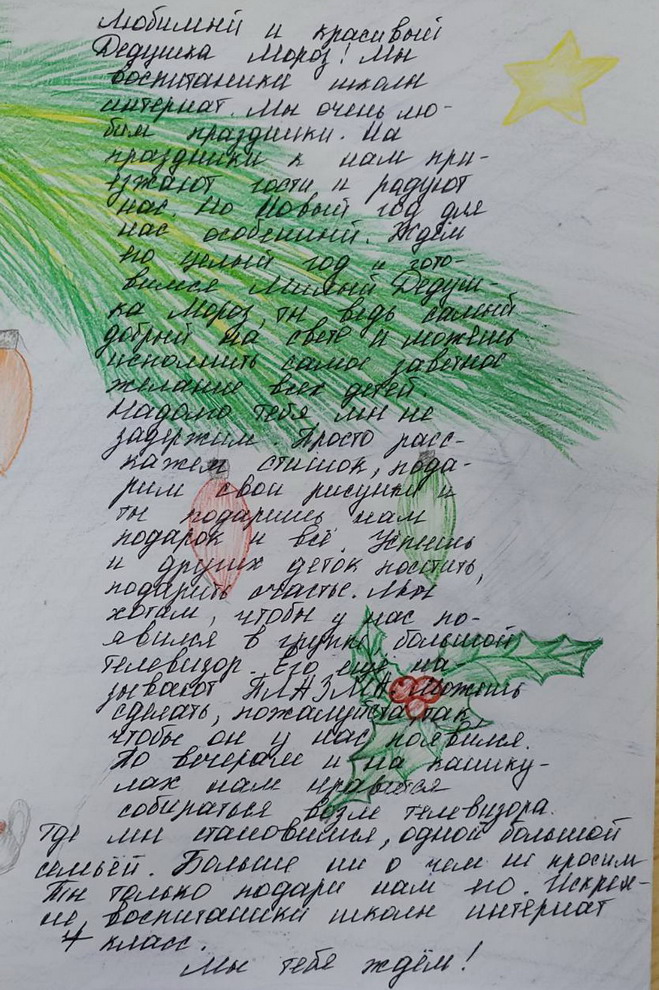 Любимый и красивый
Дедушка Мороз! Мы
воспитанники школы
интернат. Мы очень лю-
бим праздники. На
праздники к нам при-
езжают гости и радуют
нас. Но Новый год для
нас особенный. Ждём
его целый год и гото-
вимся. Милый Дедуш-
ка Мороз, ты ведь самый
добрый на свете и можешь
исполнить самое заветное
желание всех детей.
Надолго тебя мы не
задержим. Просто расс-
кажем стишок, пода-
рим свои рисунки и
ты подаришь нам
подарок и всё. Успеешь
и других деток постить,
подарить счастье. Мы
хотим, чтобы у нас по-
явился в группе большой
телевизор. Его ещё на-
зывают ПЛАЗМА. Можешь
сделать, пожалуйста, так,
чтобы он у нас появился.
По вечерам и на канику-
лах нам нравится
собираться возле телевизора.
Где мы становимся, одной большой
семьёй. Больше ни о чем не просим
Ты только подари нам его. Искрен-
не, воспитанники школы интернат
4 класс.
Мы тебя ждём!